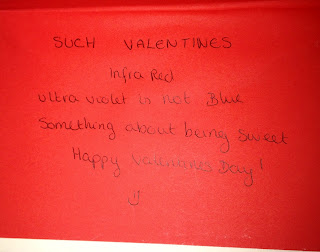 SUCH VALENTINES
Infra Red
Ultra violet is not Blue
Something about being sweet
Happy Valentines Day!